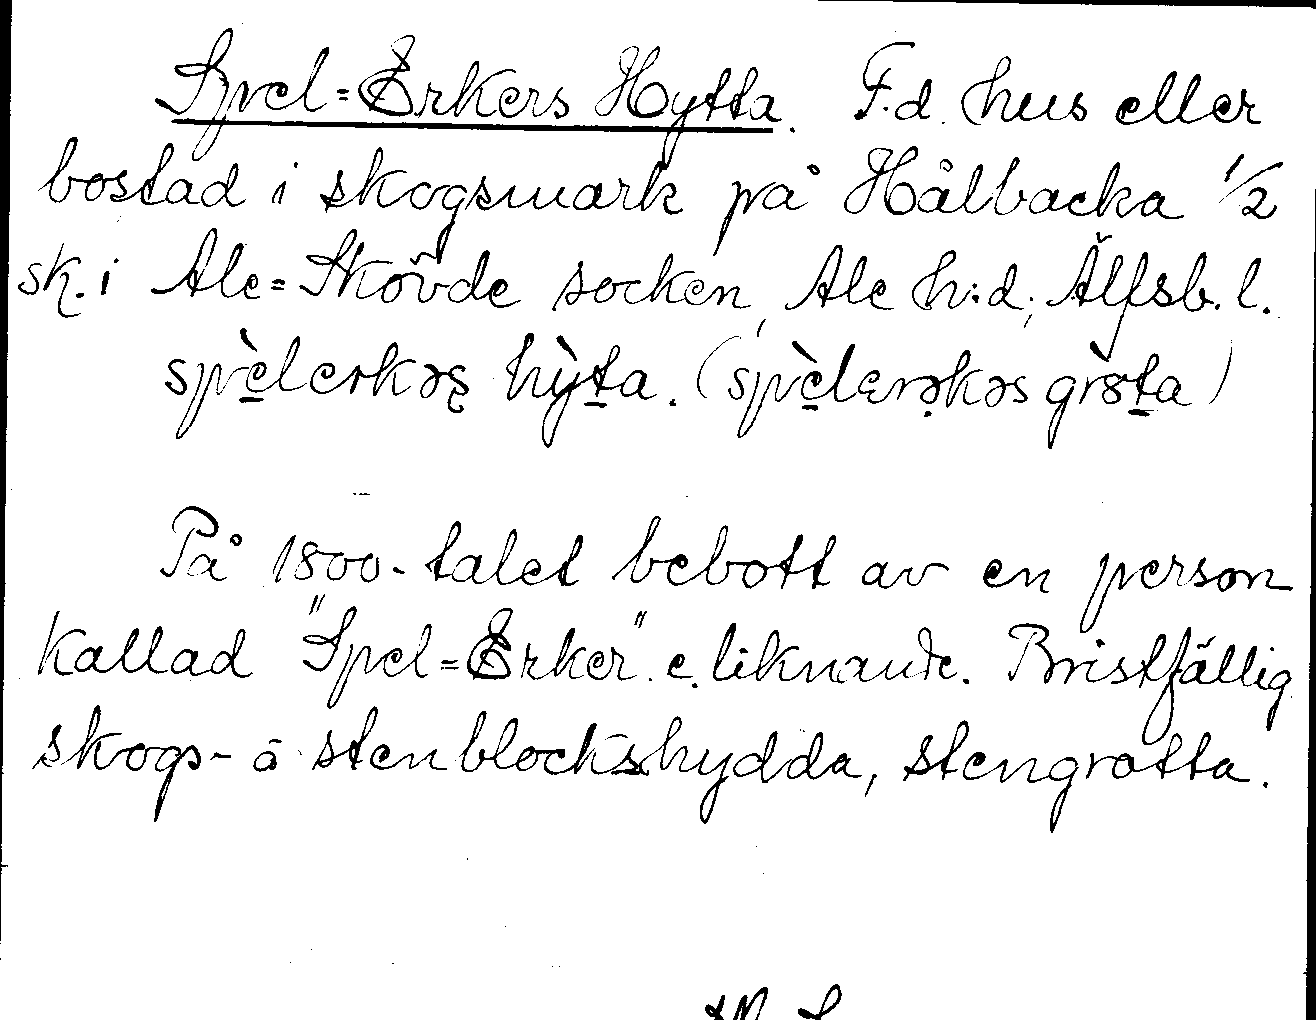 Spel=Erkers Hytta. F.d. hus eller
bostad i skogsmark på Hålbacka 1/2
sk. i Ale=Skövde socken, Ale h:d; Älfsb. l.
spèlerkəs hỳta. (spèlerəkəs gròta)
På 1800-talet bebott av en person
kallad "Spel=Erker" e. liknande. Bristfällig
skogs- å stenblockshydda, stengrotta.